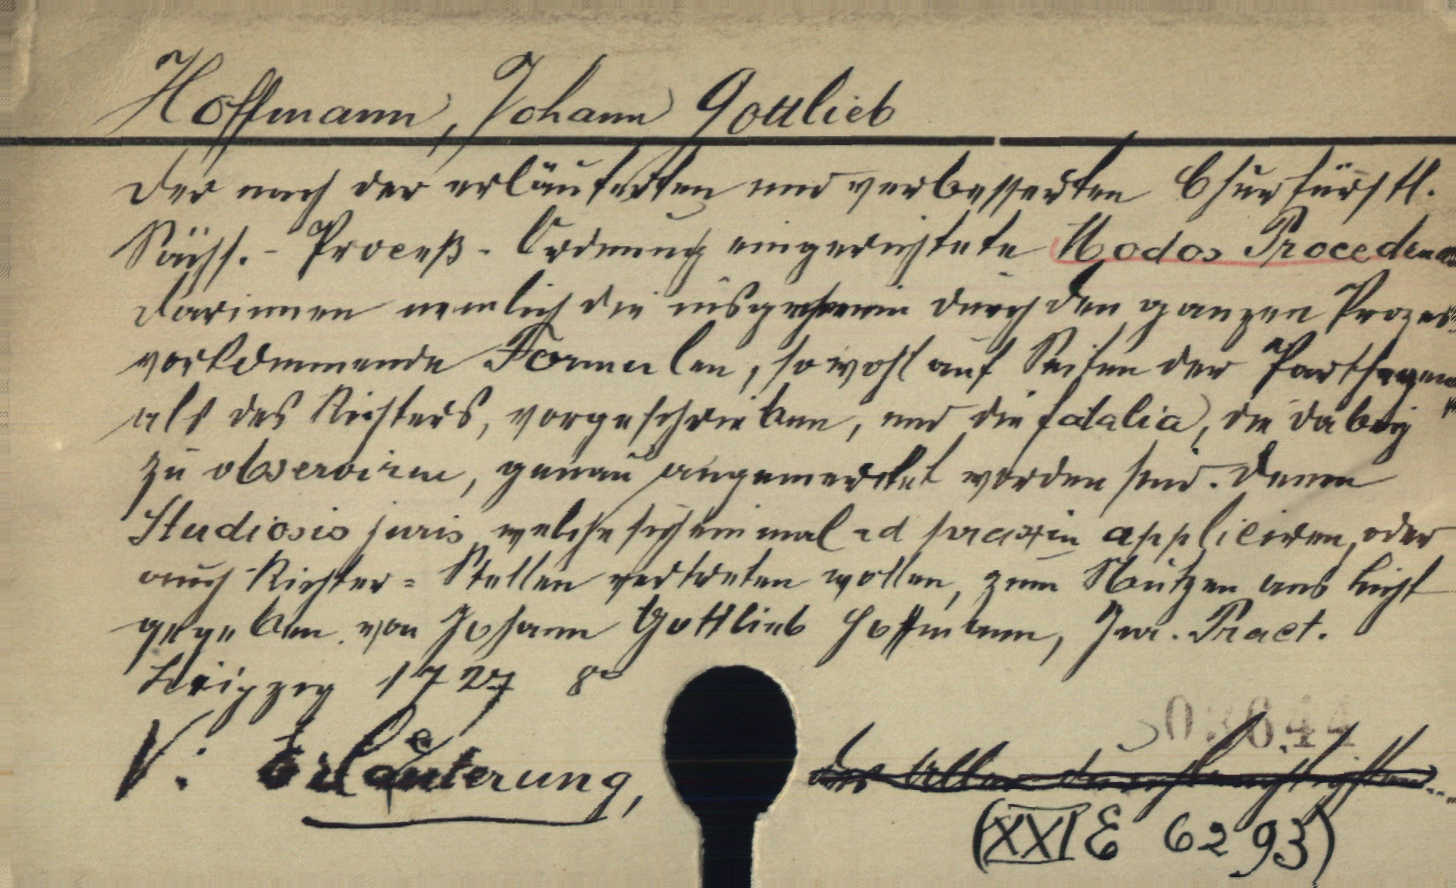 Hoffmann, Johann Gottlieb
Der nach der erläuterten und verbesserten Churfürstl.
Sächs.- Proceß- Ordnung eingerichtete Modos Procedend
darinnen nemlich die insgemein durch den ganzen Prozes
vorkommende Formulen, sowohl auf Seiten der Partheyen
als des Richters, vorgeschrieben, und die fatalia, die dabey
zu observiren, genau angemercket worden sind. Denen
Studiosis juris, welche sich einmal ad praxin appliciren, oder
auch Richter= Stellen vertreten wollen, zum Nutzen ans Licht
gegeben von Johann Gottlieb Hoffmann, Jur. Pract.
Leipzig 1727 8°
V: Erläuterung,
des Aller durchlauchtigsten....
(XXI E 6293)